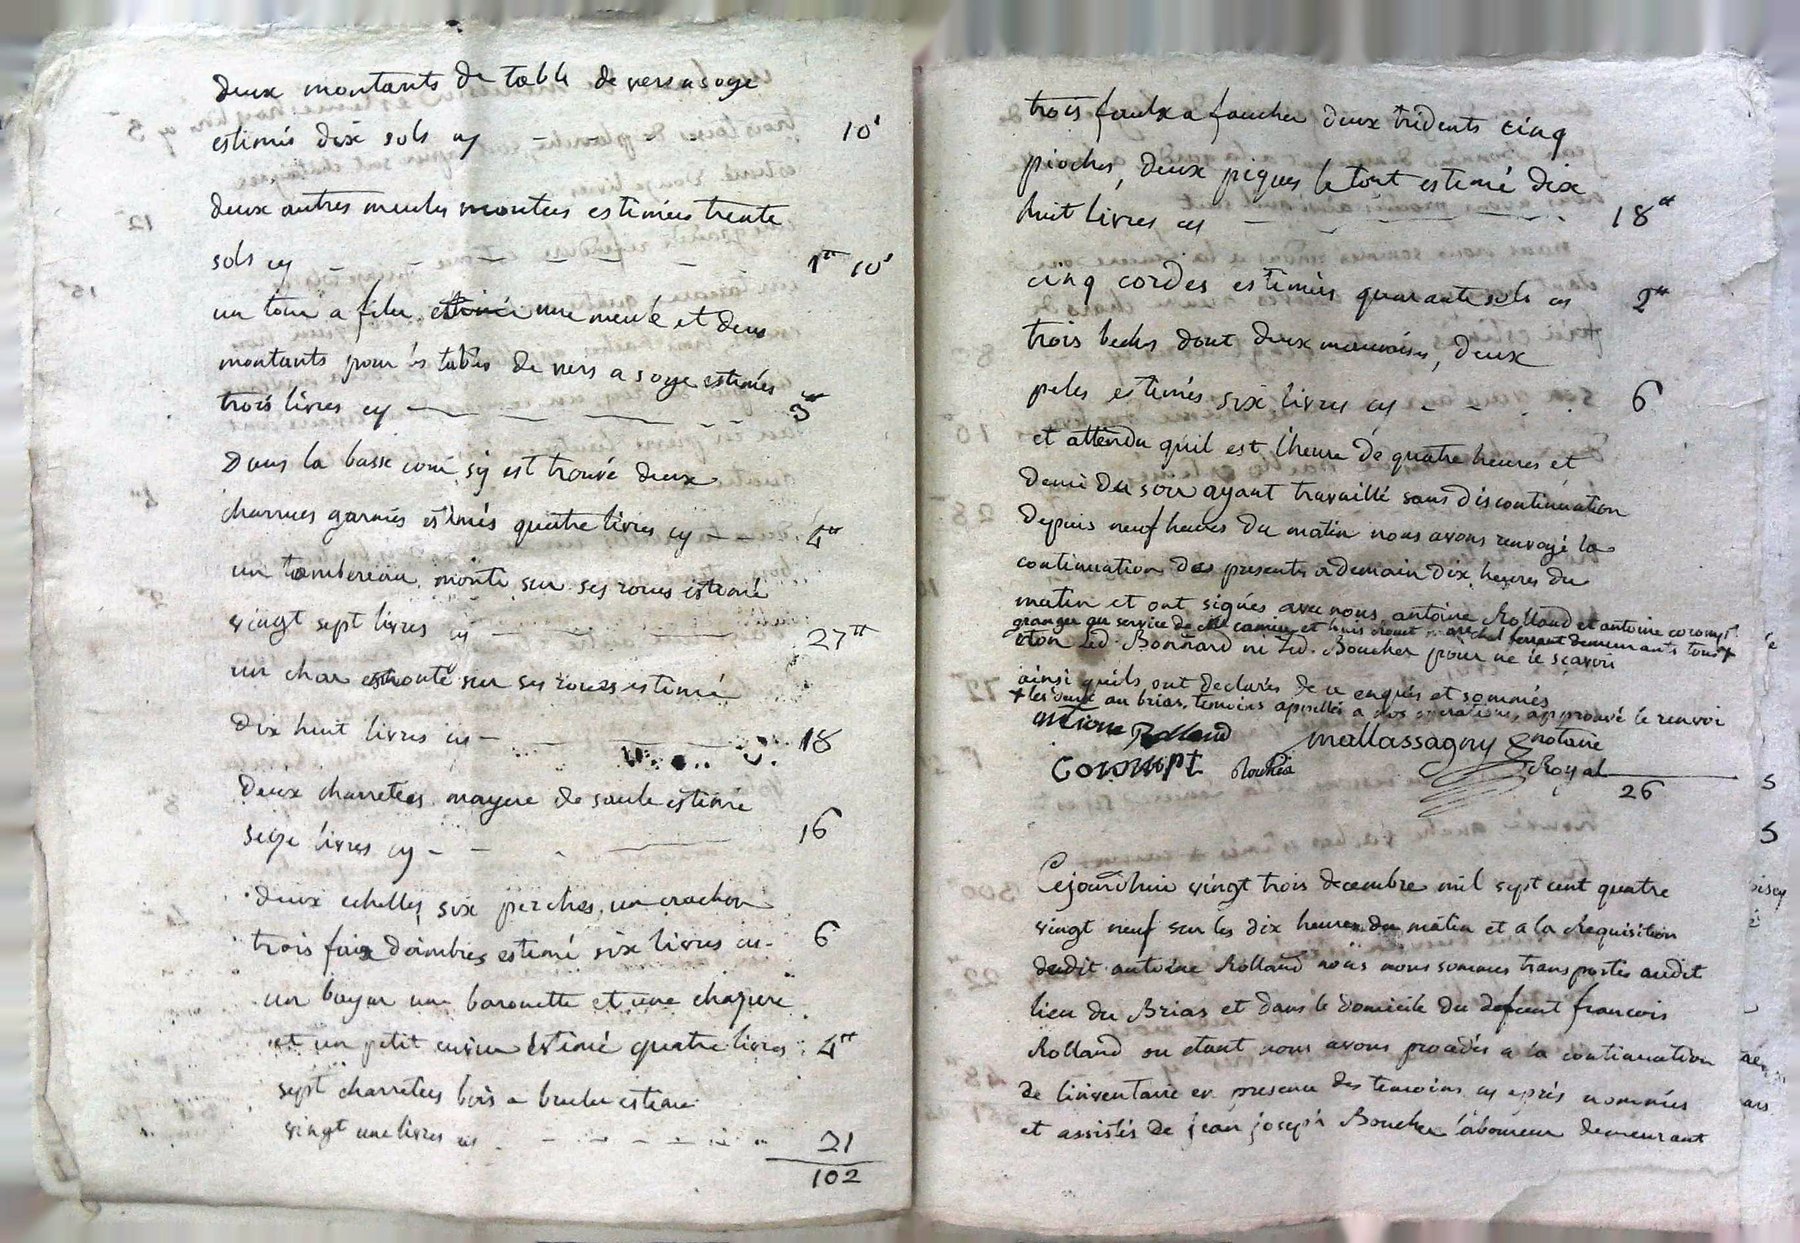 deux montants de table de vers a soye
estimés dix sols cy 10ˢ
deux autres meules montées estimées trente
sols cy 1ᵗᵗ 10ˢ
un tour a filer une meule et deux
montants pour les tables de vers a soye estimés
trois livres cy 3ᵗᵗ
Dans la basse cour s'y est trouvé deux
charrues garnies estimés quatre livres cy 4ᵗᵗ
un tombereau monté sur ses roues estimé
vingt sept livres cy 27ᵗᵗ
un char monté sur ses roues estimé
dix huit livres cy 18
Deux charretées mayere de saule estimé
seize livres cy 16
deux echelles, six perches, un crochon
trois faix estimé six livres cy 6
un bayar une barouette et une
et un petit cuvier estimé quatre livres 4ᵗᵗ
sept charretées bois a bruler estimé
vingt une livres cy 21
102
trois faulx a faucher deux tridents cinq
pioches, deux piques le tout estimé dix
huit livres cy 18ᵗᵗ
cinq cordes estimées quarante sols cy 2ᵗᵗ
trois beches dont deux mauvaises, deux
peles estimés six livres cy 6
et attendu qu'il est l'heure de quatre heures et
demie du soir ayant travaillé sans discontinuation
depuis neuf heures du matin nous avons renvoyé la
continuation des presents a demain dix heures du
matin et ont signés avec nous, antoine Rolland et antoine corompt
granger au service de et marechal ferrant demeurants tous +
non Led. Bonnard ni Led. Boucher pour ne le scavoir
ainsi qu'ils ont declarés de ce enquis et sommés
+ les deux au brias, temoins appellés a nos operations, approuvé le renvoi
antoine Rolland mallassagny notaire
Corompt Royal
26
Cejourdhui vingt trois decembre mil sept cent quatre
vingt neuf sur les dix heures du matin et a la Requisition
dudit antoine Rolland nous nous sommes transportés audit
lieu du Brias et dans le domicile du defunt francois
Rolland ou etant nous avons procedés a la continuation
de l'inventaire en presence des temoins cy aprés nommés
et assistés de jean joseph Boucher laboureur demeurant